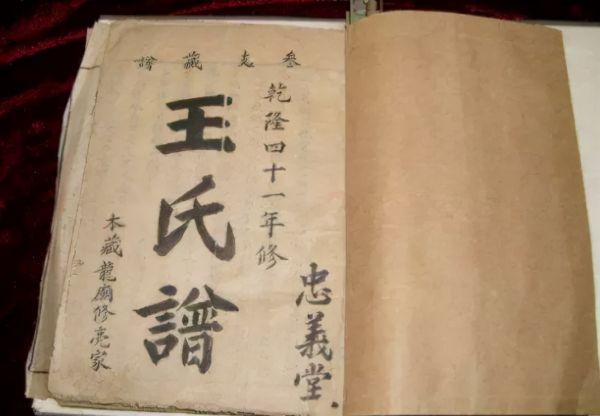 叁藏譜
乾隆四十一年修
忠義堂
王氏譜
本藏龍廟修亮家